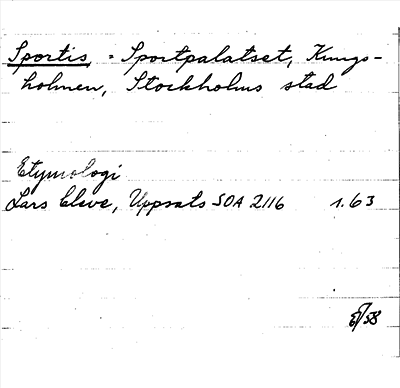 Sportis = Sportpalatset, Kungs-
holmen, Stockholms stad
Etymologi
Lars Cleve, Uppsats SOA 2116 1.63
/58